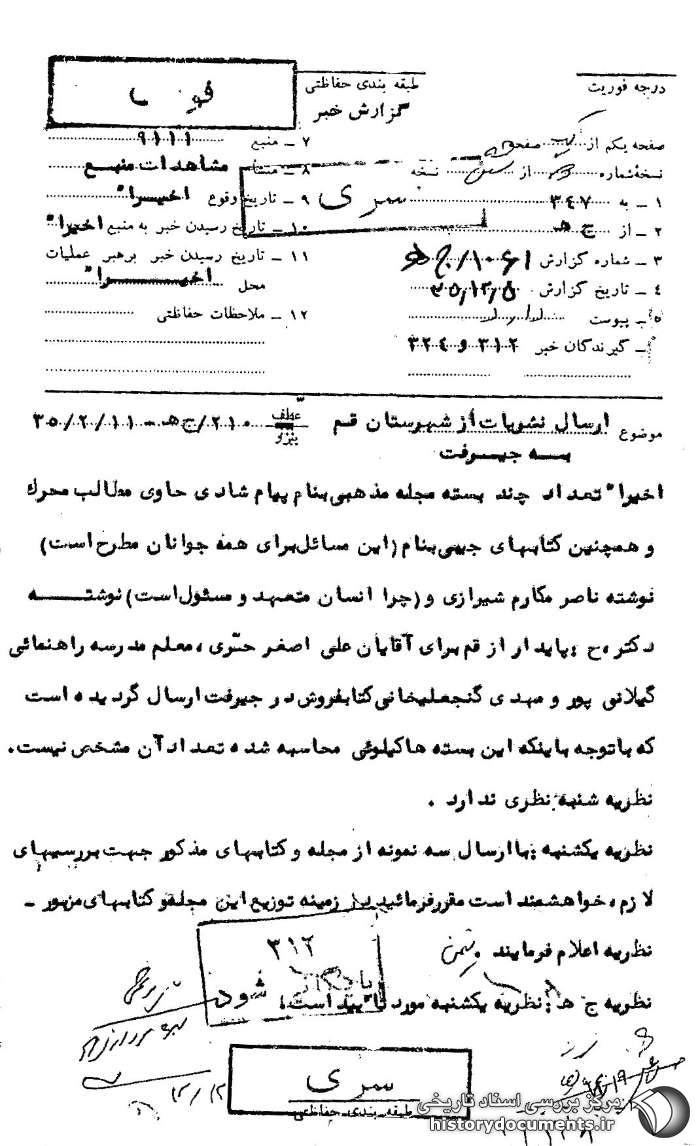 درجه فوریت
طبقه بندی حفاظتی
گزارش خبر
صفحه یکم از یک صفحه
نسخهٔ شماره از نسخه
۱ - به ۳۴۷
۲ - از ج هـ
۳ - شماره گزارش ۱۰۶۱/ج هـ
۴ - تاریخ گزارش ۳۵/۱۲/۸
۵ - پیوست دارد
۶ - گیرندگان خبر ۳۱۲ و ۳۲۴
۷ - منبع ۹۱۱۱
۸ - منشاء مشاهدات منبع
۹ - تاریخ وقوع اخیرا"
۱۰ - تاریخ رسیدن خبر به منبع اخیرا"
۱۱ - تاریخ رسیدن خبر برهبر عملیات
محل اخیرا"
۱۲ - ملاحظات حفاظتی
سری
موضوع ارسال نشریات از شهرستان قم
به جیرفت
عطف
پیرو
۲۱۰/ج هـ - ۳۵/۲/۱۱
اخیرا" تعداد چند بسته مجله مذهبی بنام پیام شادی حاوی مطالب محرك
و همچنین کتابهای جیبی بنام (این مسائل برای همه جوانان مطرح است)
نوشته ناصر مکارم شیرازی و (چرا انسان متعهد و مسئول است) نوشته
دکتر، ح : پایدار از قم برای آقایان علی اصغر حتّری، معلم مدرسه راهنمائی
گیلانی پور و مهدی گنجعلیخانی کتابفروش در جیرفت ارسال گردیده است
که باتوجه باینکه این بسته ها کیلوئی محاسبه شده تعداد آن مشخص نیست.
نظریه شنبه نظری ندارد .
نظریه یکشنبه : با ارسال سه نمونه از مجله و کتابهای مذکور جهت بررسیهای
لازم، خواهشمند است مقرر فرمائید در زمینه توزیع این مجله و کتابهای مزبور -
نظریه اعلام فرمایند .
نظریه ج هـ : نظریه یکشنبه مورد تایید است.
۳۱۲
بایگانی شود
سری
طبقه بندی حفاظتی
۱۲/۱۲
مرکز بررسی اسناد تاریخی
historydocuments.ir